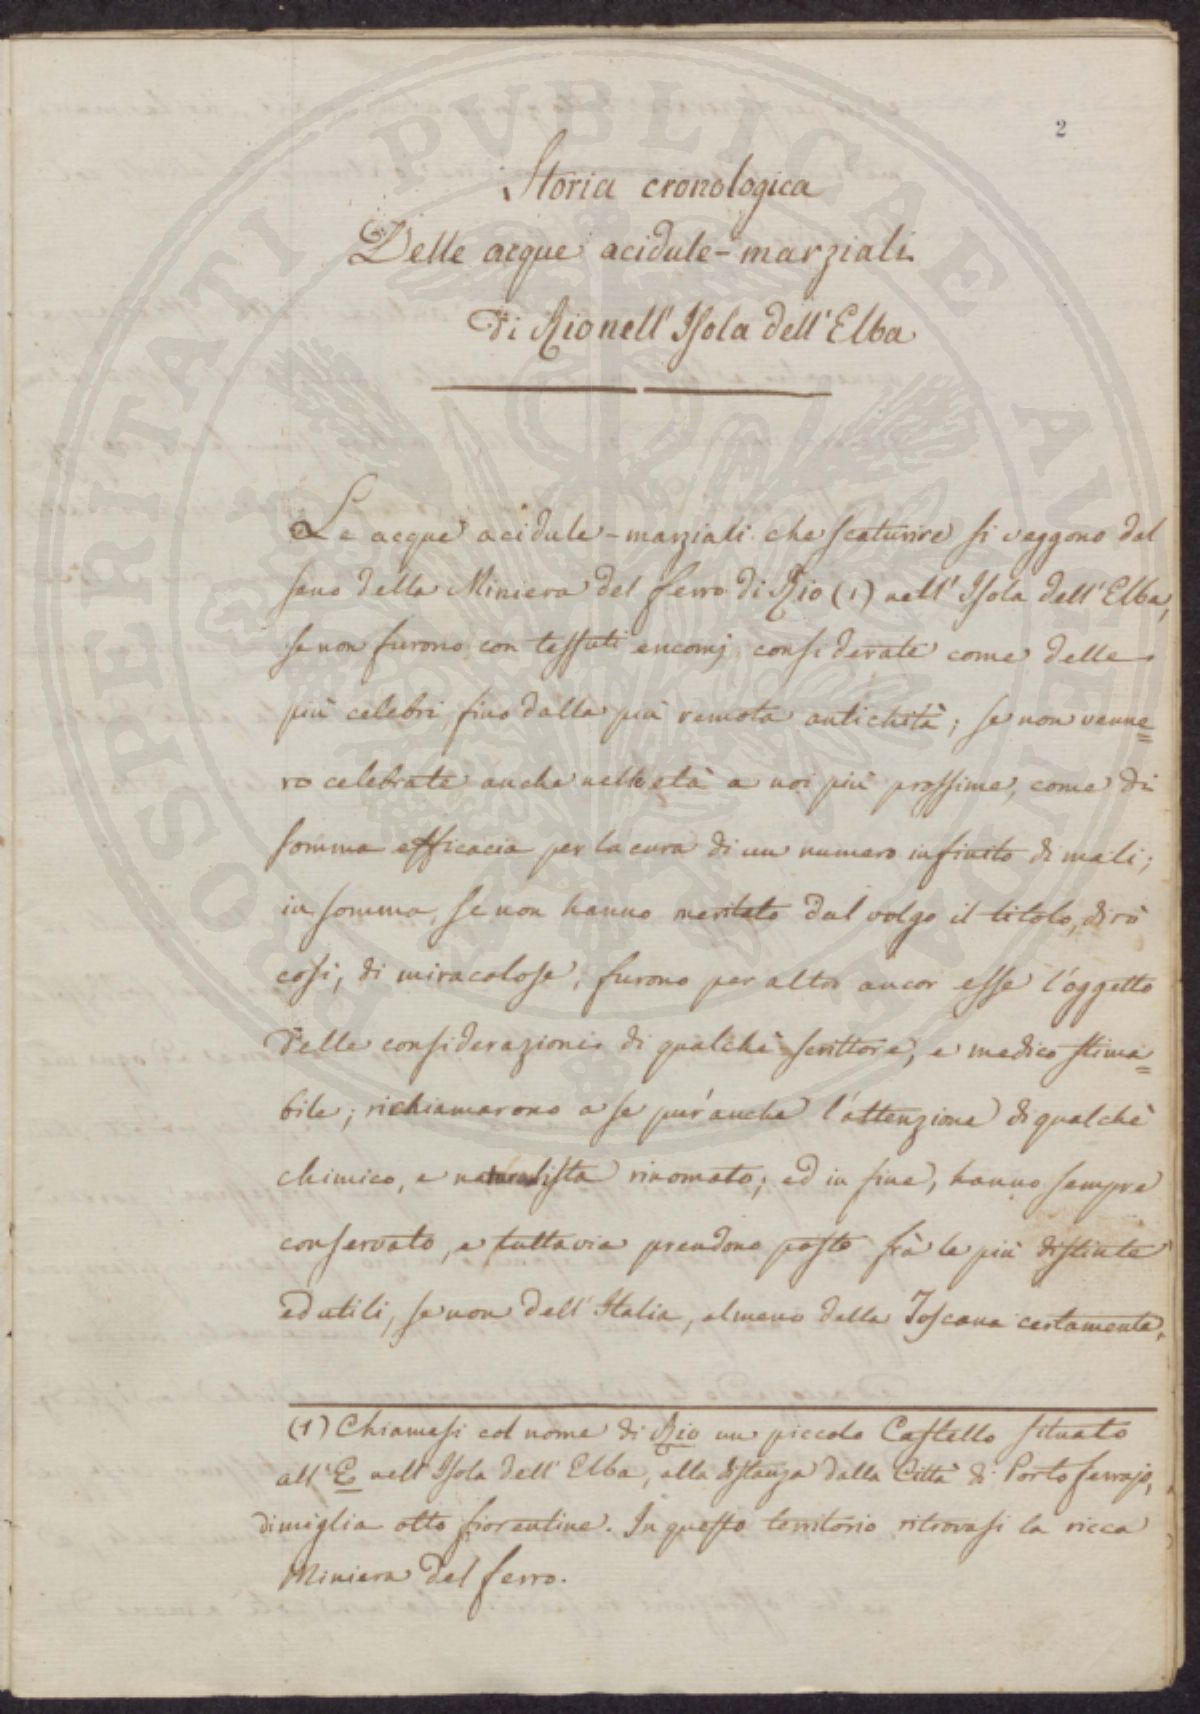 2
Storia cronologica
Delle acque acidule-marziali
Di Rio nell' Isola dell' Elba
Le acque acidule-marziali che scaturire si veggono dal
seno della Miniera del ferro di Rio (1) nell' Isola dell' Elba,
se non furono con tessuti encomj considerate come delle
più celebri fino dalla più remota antichità; se non venne=
ro celebrate anche nelle età a noi più prossime, come di
somma efficacia per la cura di un numero infinito di mali;
in somma, se non hanno meritato dal volgo il titolo, dirò
così, di miracolose, furono per altro ancor esse l'oggetto
delle considerazioni di qualchè scrittore, e medico stima=
bile; richiamarono a se pur'anche l'attenzione di qualchè
chimico, e naturalista rinomato; ed in fine, hanno sempre
conservato, e tuttavia prendono posto frà le più distinte
ed utili, se non dell' Italia, almeno della Toscana certamente.
(1) Chiamasi col nome di Rio un piccolo Castello situato
all' E nell' Isola dell' Elba, alla distanza dalla Città di Porto ferrajo,
di miglia otto fiorentine. In questo territorio ritrovasi la ricca
Miniera del ferro.
PROSPERITATI PVBLICAE AVGENDAE